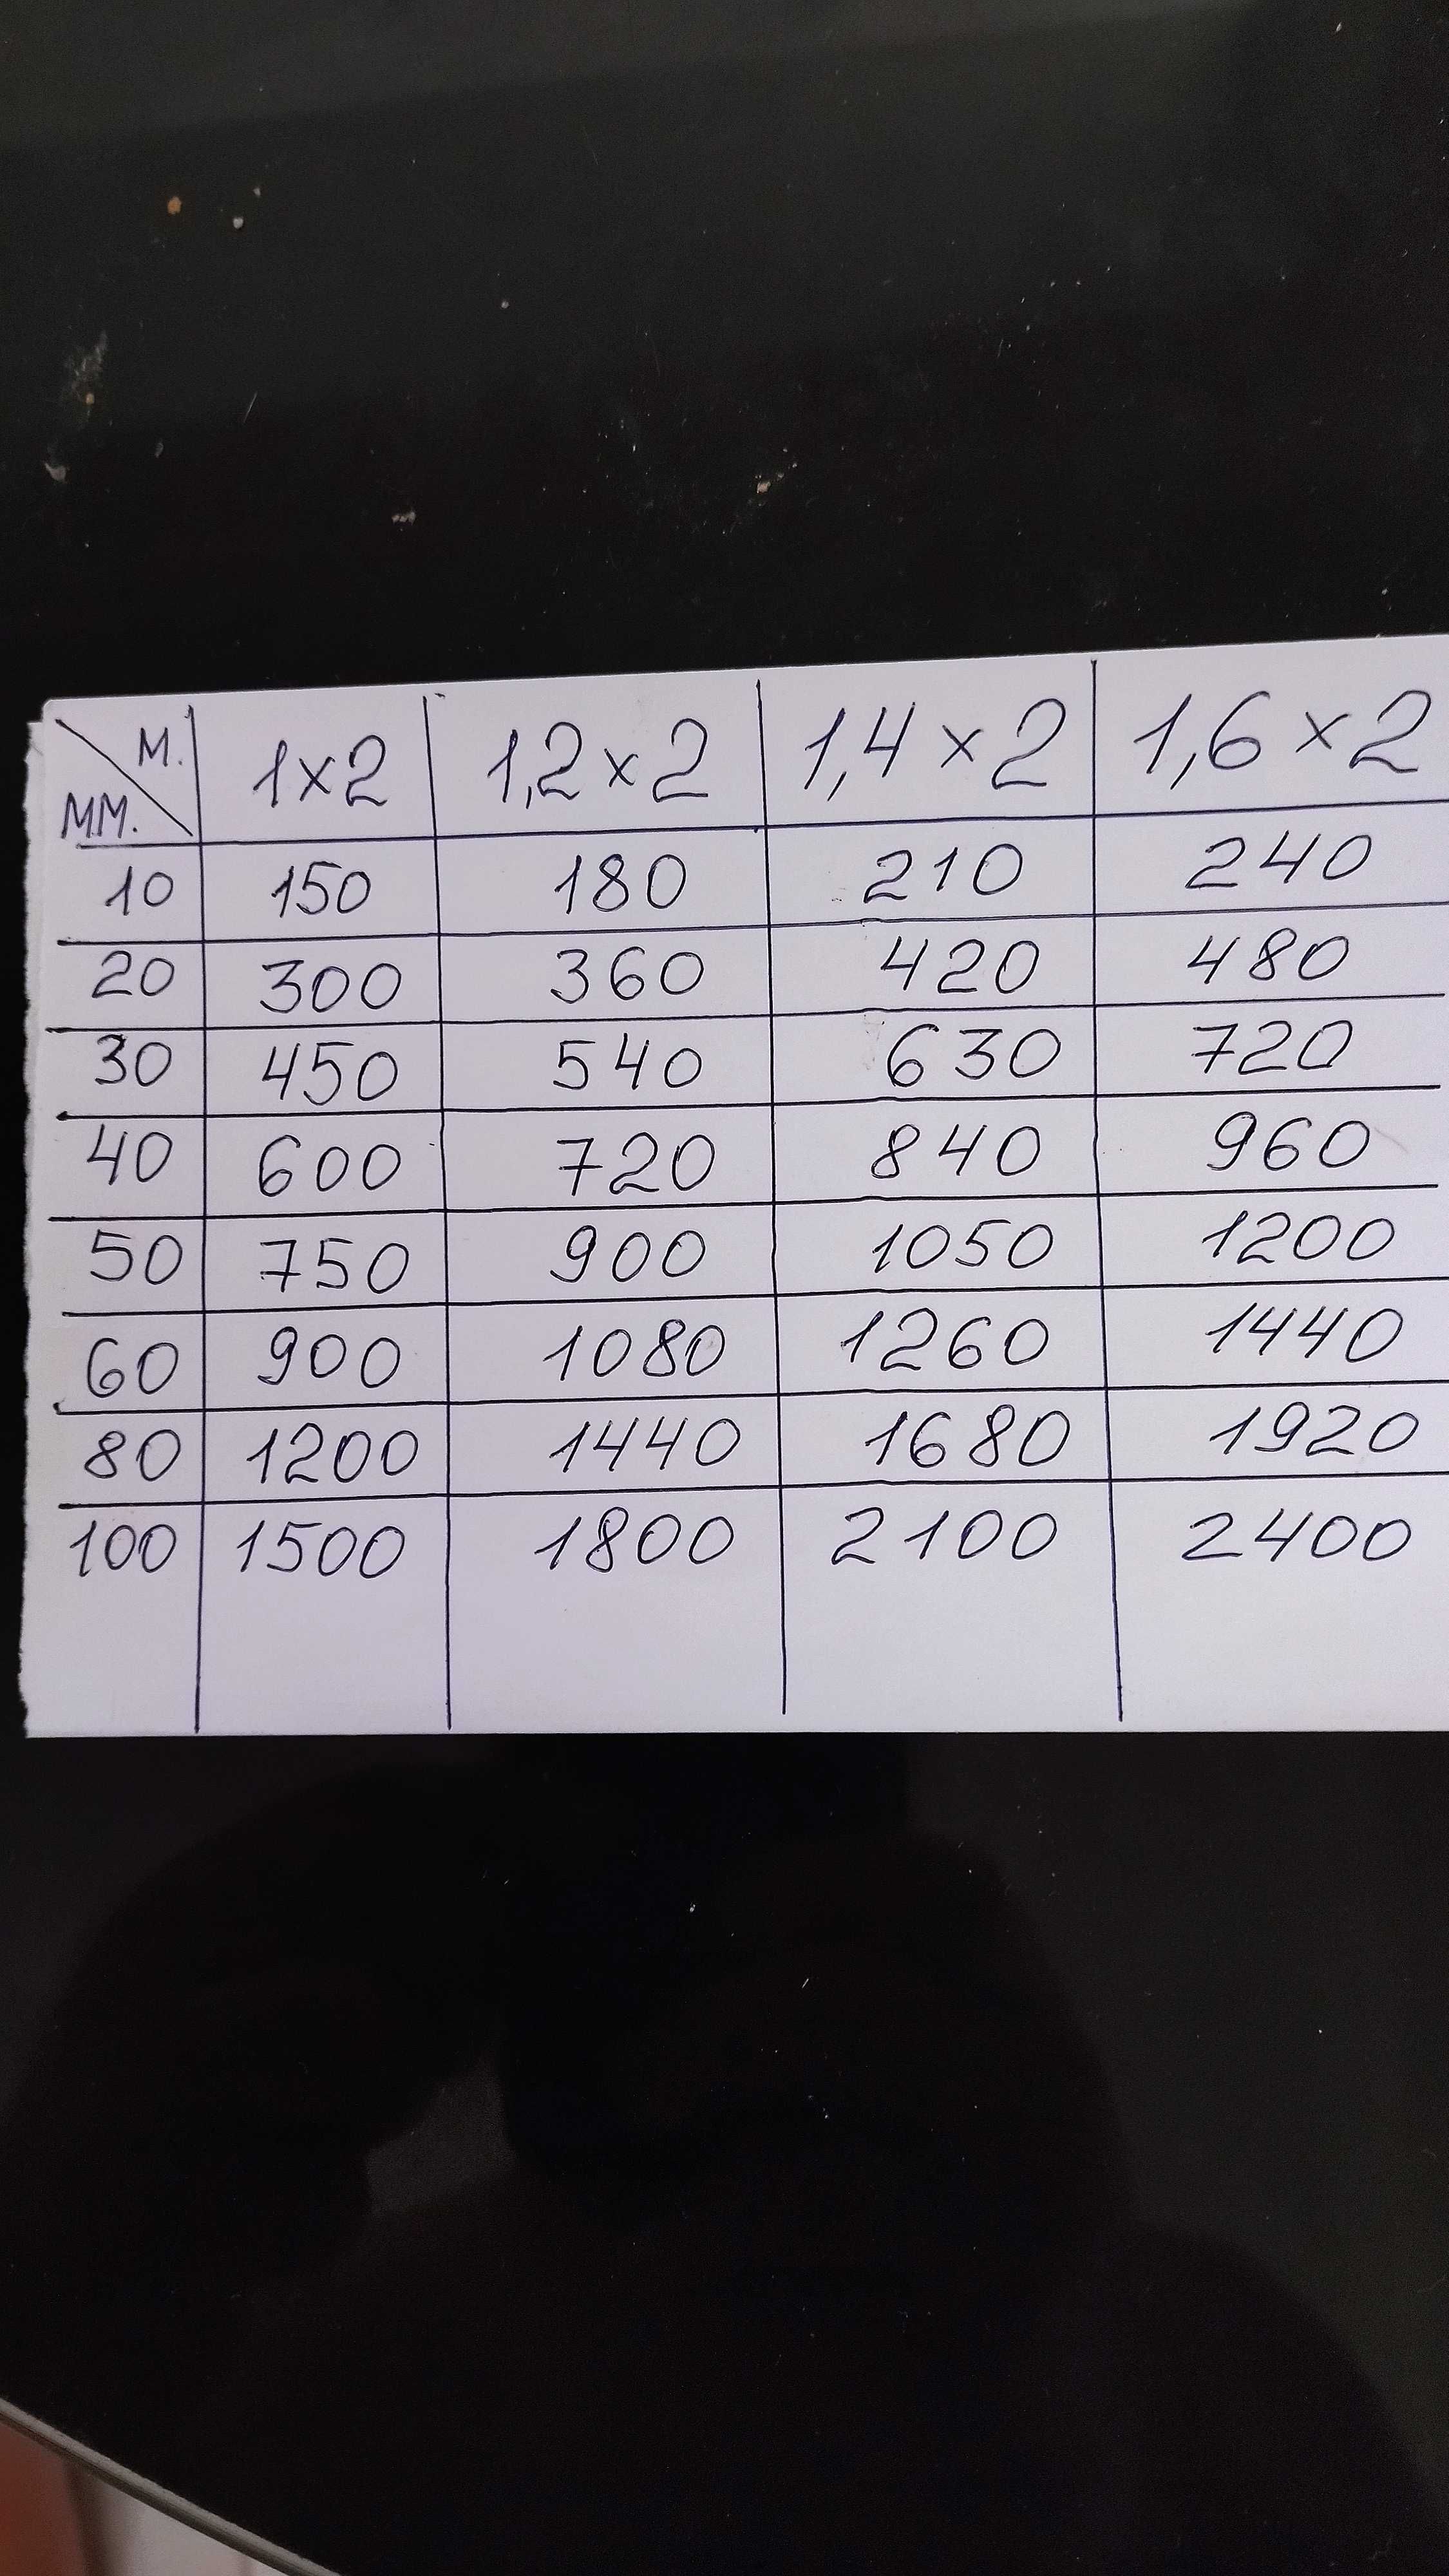 м.
мм.
1x2 1,2x2 1,4x2 1,6x2
10 150 180 210 240
20 300 360 420 480
30 450 540 630 720
40 600 720 840 960
50 750 900 1050 1200
60 900 1080 1260 1440
80 1200 1440 1680 1920
100 1500 1800 2100 2400